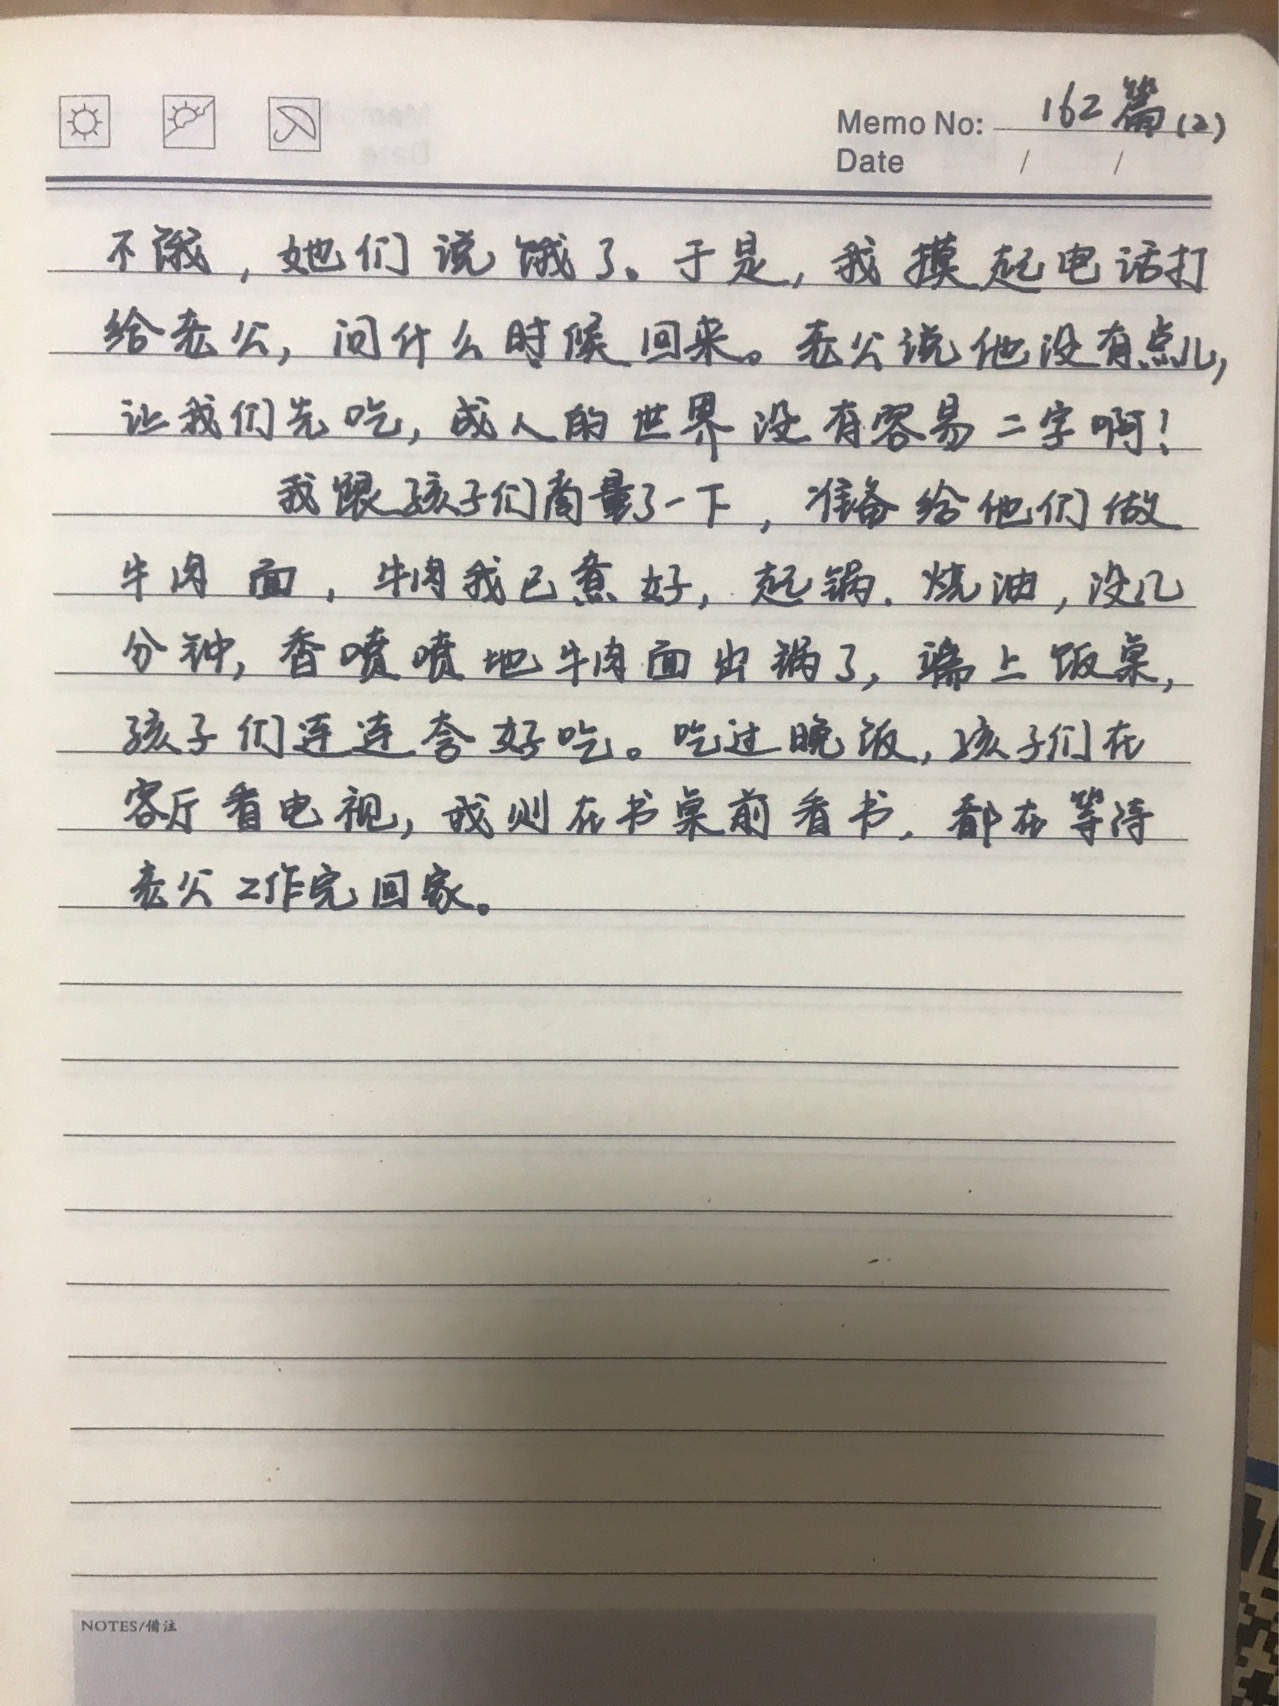 Memo No: 162篇(2)
Date / /
不饿，她们说饿了。于是，我摸起电话打
给老公，问什么时候回来。老公说他没有点儿，
让我们先吃，成人的世界没有容易二字啊！
我跟孩子们商量了一下，准备给他们做
牛肉面，牛肉我已煮好，起锅．烧油，没几
分钟，香喷喷地牛肉面出锅了，端上饭桌，
孩子们连连夸好吃。吃过晚饭，孩子们在
客厅看电视，我则在书桌前看书．都在等待
老公工作完回家。
NOTES/備注